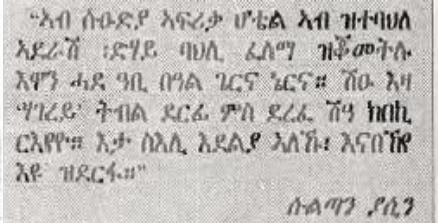 “ኣብ ሱዑድያ ኣፍሪቃ ሆቴል ኣብ ዝተባህለ
ኣደራሽ ፡ድሃይ ባህሊ ፈለማ ዝቖመትሉ
እዋን ሓደ ዓቢ በዓል ጌርና ኔርና። ሽዑ እዛ
‘ሃገረይ’ ትብል ደርፊ ምስ ደረፈ ሽዓ ክበኪ
ርእየዮ። እታ ስእሊ እደልያ ኣለኹ፡ እናበኸየ
እዩ ዝደርፋ።”
ሱልጣን ያሲን